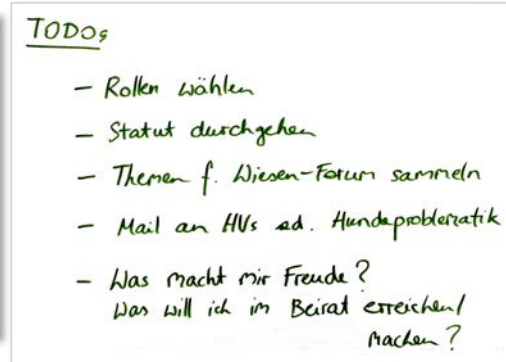 TODOs
- Rollen wählen
- Statut durchgehen
- Themen f. Wiesen-Forum sammeln
- Mail an HVs ad. Hundeproblematik
- Was macht mir Freude?
Was will ich im Beirat erreichen/
machen?